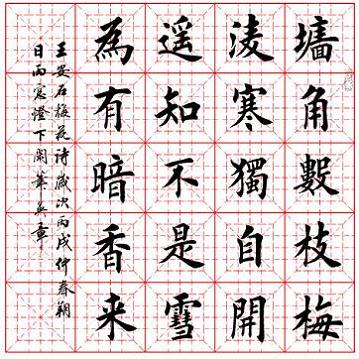 墙角數枝梅
淩寒獨自開
遥知不是雪
為有暗香来
王安石梅花诗歲次丙戌仲春朔
日雨窓燈下開華英章